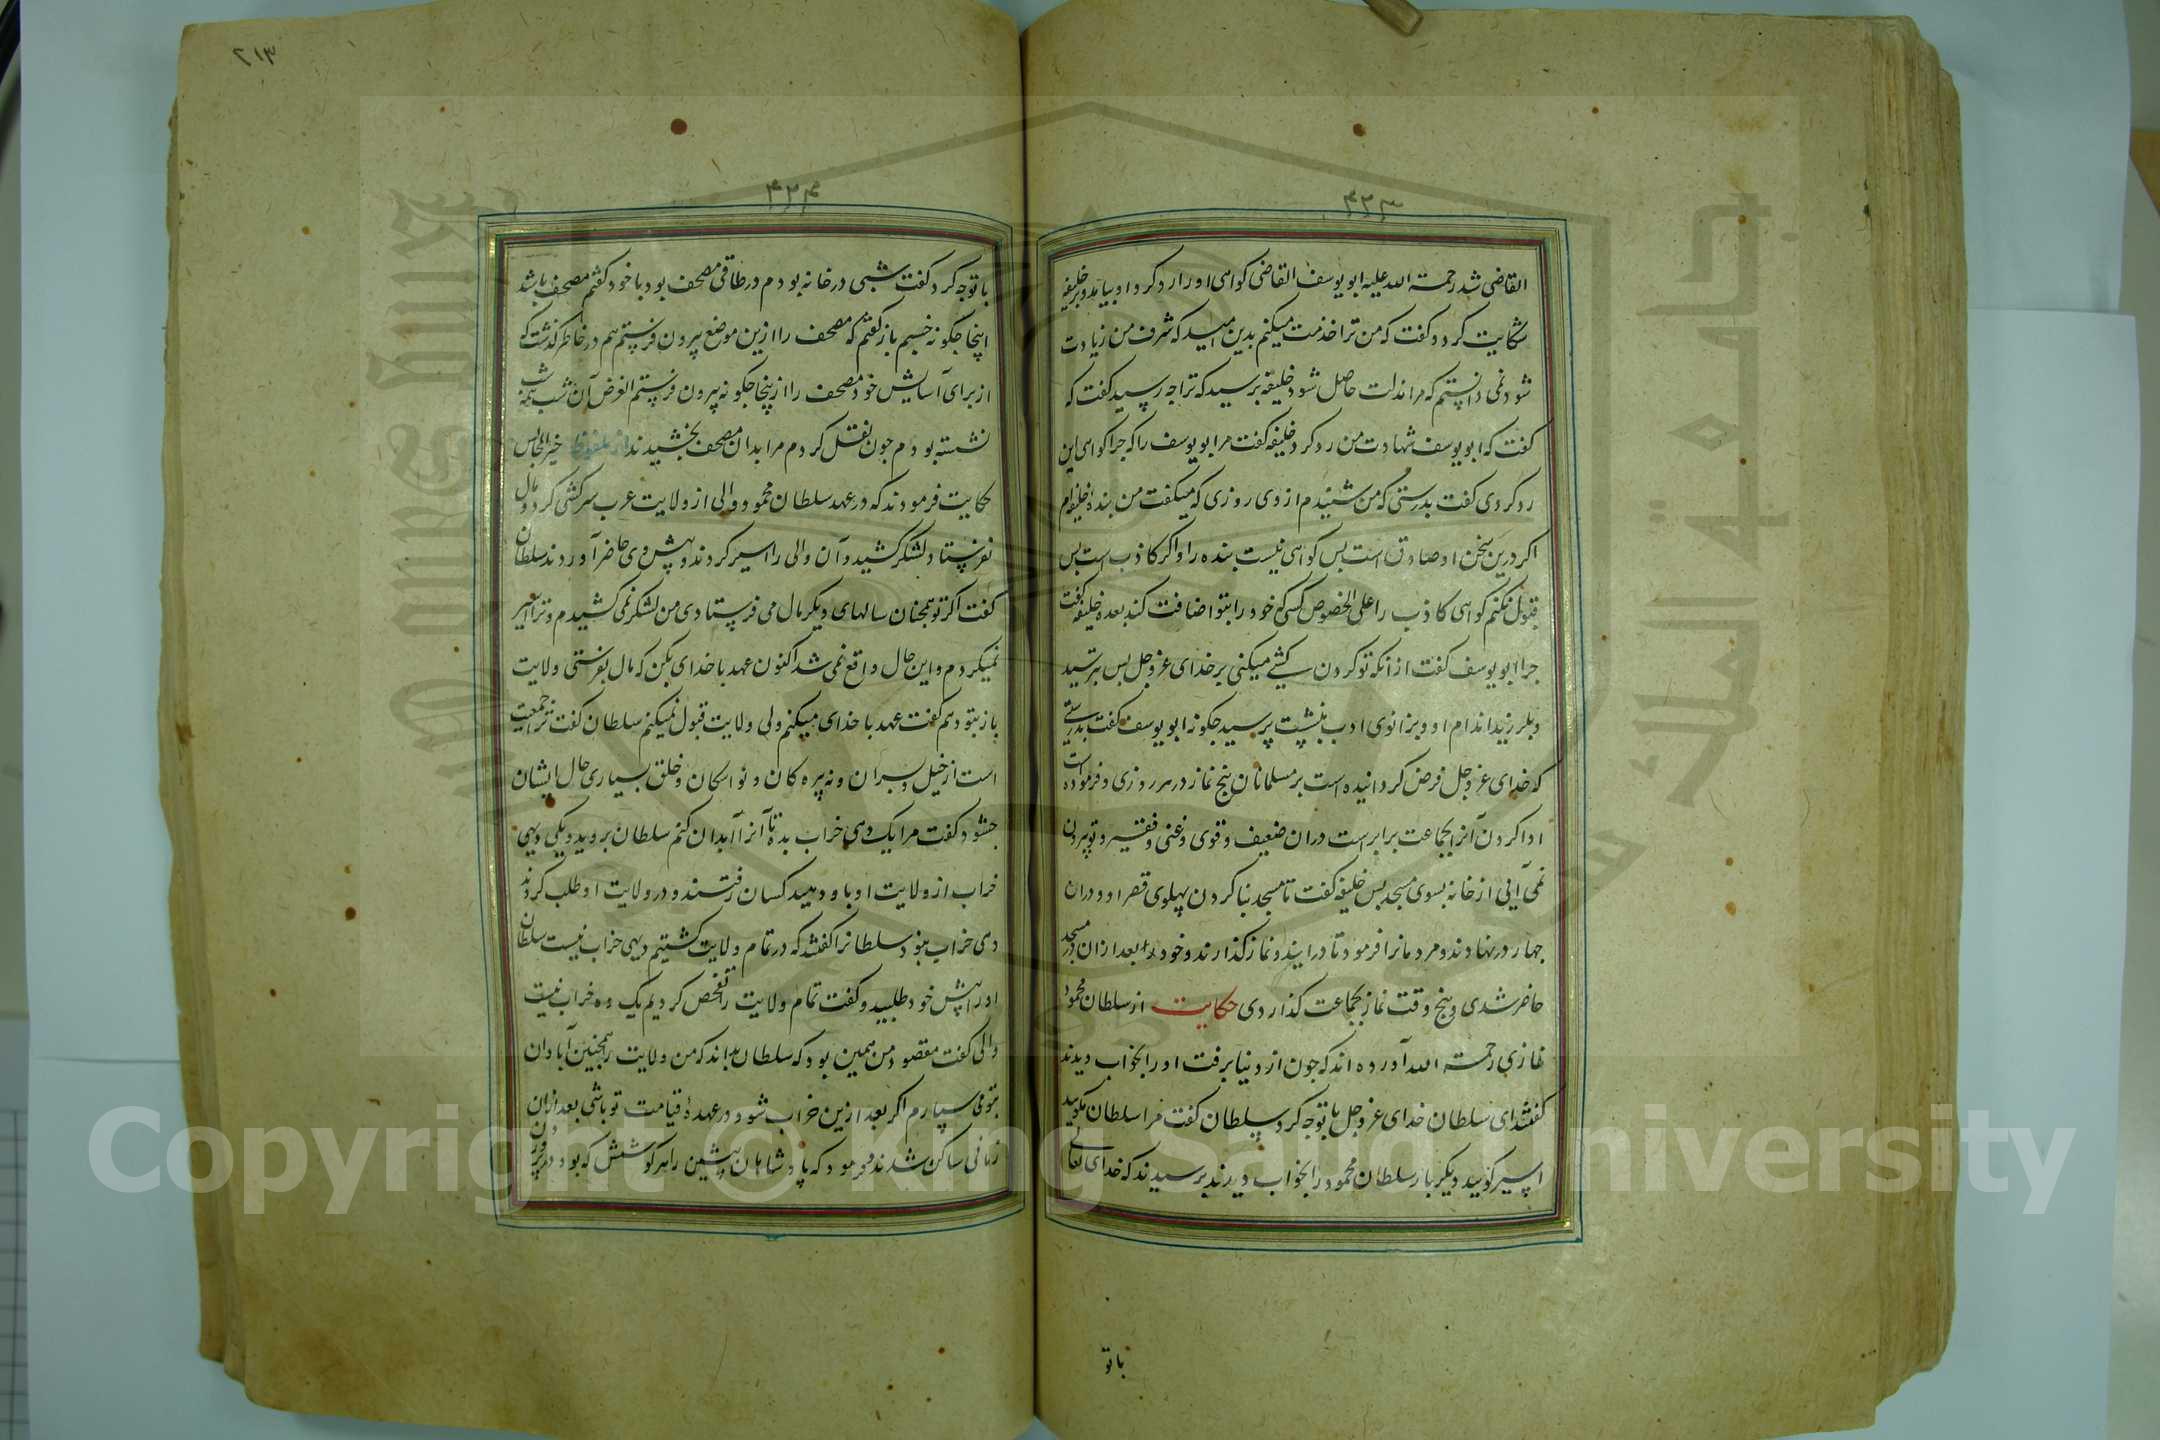 ۴۲۳
القاضی شد رحمة الله علیه ابو یوسف القاضی کواهی او را رد کرد او بیامد و بر خلیفه
شکایت کرد و کفت که من ترا خذمت میکنم بدین امید که شرف من زیادت
شود نمی دانستم که مرا مذلت حاصل شود خلیفه برسید که ترا جه رسید کفت که
کفت که ابو یوسف شهادت من رد کرد خلیفه کفت مر ابو یوسف را که جرا کواهی این
رد کردی کفت بدرستی که من شنیدم از وی روزی که میکفت من بنده خلیفه ام
اکر درین سخن او صادق است بس کواهی نیست بنده را و اکر کاذب است بس
قبول نکنم کواهی کاذب را علی الخصوص کسی که خود را بتو اضافت کند بعده خلیفه کفت
جرا ابو یوسف کفت از انکه تو کردن کشی میکنی بر خدای عز و جل بس بترسید
و بلرزید اندام او و بزانوی ادب بنشست پرسید جکونه ابو یوسف کفت بدرستی
که خدای عز و جل فرض کردانیده است بر مسلمانان پنج نماز در هر روزی و فرموده است
ادا کردن آنرا بجماعت برابر است دران ضعیف و قوی و غنی و فقیر و تو بیرون
نمی آئی از خانه بسوی مسجد بس خلیفه کفت تا مسجد بنا کردن پهلوی قصر او و دران
جهار در نهادند و مردمانرا فرمود تا در ایند و نماز کذارند و خود را بعد ازان در مسجد
حاضر شدی و پنج وقت نماز بجماعت کذاردی حکایت از سلطان محمود
غازی رحمة الله آورده اند که جون از دنیا برفت او را بخواب دیدند
کفتند ای سلطان خدای عز و جل با تو جه کرد سلطان کفت مرا سلطان مکوئید
اسیر کوئید دیکر بار سلطان محمود را بخواب دیدند برسیدند که خدای تعالی
با تو
۲۱۳
۴۲۴
با تو جه کرد کفت شبی در خانه بودم در طاقی مصحف بود با خود کفتم مصحف باشد
اینجا جکونه خسبم باز کفتم که مصحف را ازین موضع بیرون فرستم هم در خاطر کذشت که
از برای آسایش خود مصحف را از اینجا جکونه بیرون فرستم الغرض آن شب همه شب
نشسته بودم جون نقل کردم مرا بدان مصحف بخشیدند از ملفوظ خیر المجالس
حکایت فرمودند که در عهد سلطان محمود والی از ولایت عرب سرکشی کرد و مال
نفرستاد لشکر کشید و آن والی را اسیر کردند و پیش وی حاضر آوردند سلطان
کفت اکر تو همجنان سالهای دیکر مال می فرستادی من لشکر نمی کشیدم و ترا اسیر
نمیکردم و این حال واقع نمی شد اکنون عهد با خدای بکن که مال بفرستی ولایت
باز بتو دهم کفت عهد با خدای میکنم ولی ولایت قبول نمیکنم سلطان کفت ترا جمعیت
است از خیل و بسران و نبیره کان و نواسکان و خلق بسیاری حال ایشان
جشود کفت مرا یک دهی خراب بده تا آنرا آبدان کنم سلطان بروید و یکی دیهی
خراب از ولایت او باو دهید کسان رفتند و در ولایت او طلب کردند
دهی خراب نبود سلطانرا کفتند که در تمام ولایت کشتیم دیهی خراب نیست سلطان
او را پیش خود طلبید و کفت تمام ولایت را تفحص کردیم یک ده خراب نیست
والی کفت مقصود من همین بود که سلطان بداند که من ولایت را همجنین آبادان
بتو می سپارم اکر بعد ازین خراب شود در عهدهٔ قیامت تو باشی بعد ازان
زمانی ساکن شدند و فرمود که پادشاهان پیشین را هر کوشش که بود